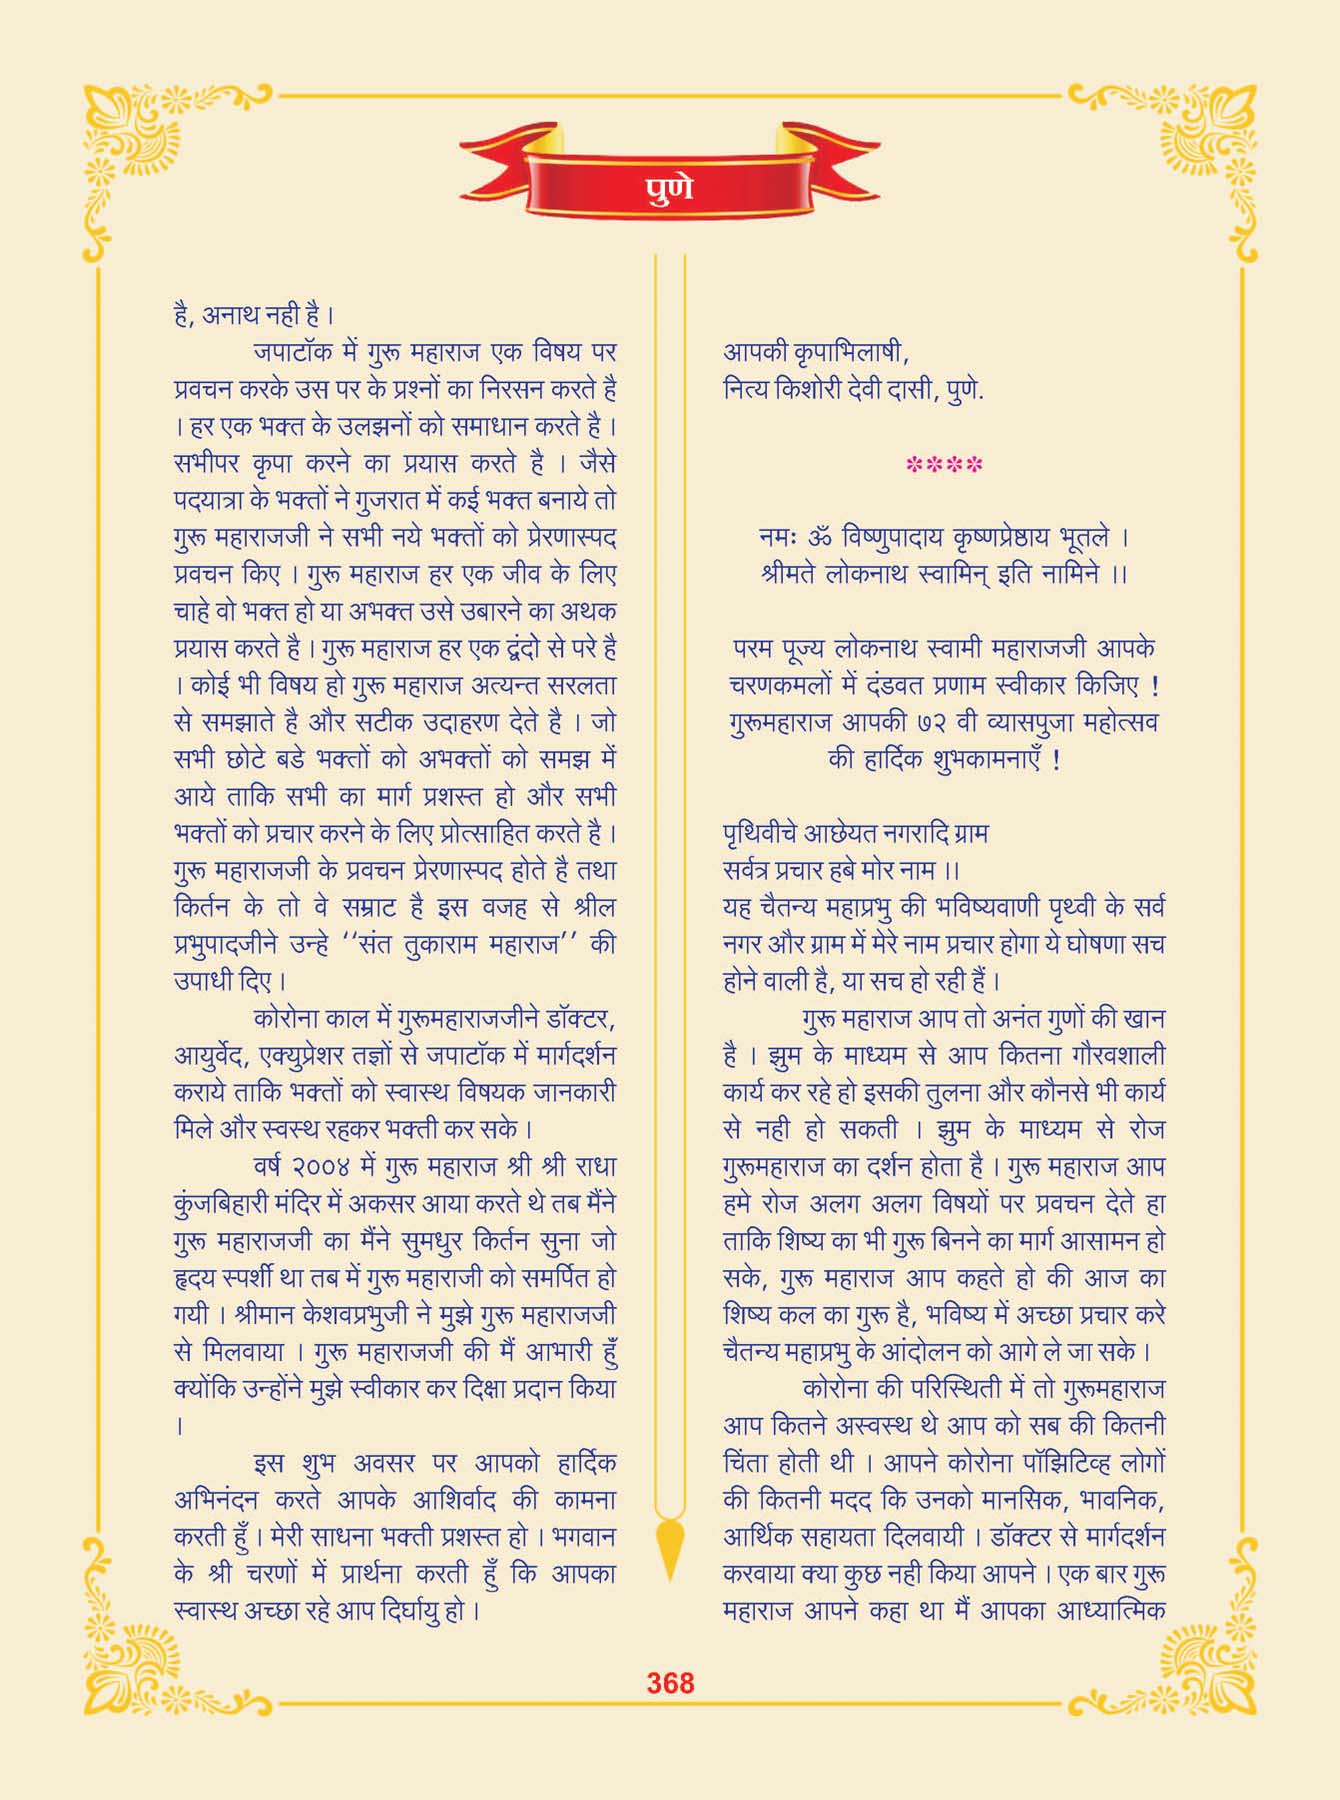 पुणे
है, अनाथ नही है ।
जपाटॉक में गुरू महाराज एक विषय पर
प्रवचन करके उस पर के प्रश्नों का निरसन करते है
। हर एक भक्त के उलझनों को समाधान करते है ।
सभीपर कृपा करने का प्रयास करते है । जैसे
पदयात्रा के भक्तों ने गुजरात में कई भक्त बनाये तो
गुरू महाराजजी ने सभी नये भक्तों को प्रेरणास्पद
प्रवचन किए । गुरू महाराज हर एक जीव के लिए
चाहे वो भक्त हो या अभक्त उसे उबारने का अथक
प्रयास करते है । गुरू महाराज हर एक द्वंदो से परे है
। कोई भी विषय हो गुरू महाराज अत्यन्त सरलता
से समझाते है और सटीक उदाहरण देते है । जो
सभी छोटे बडे भक्तों को अभक्तों को समझ में
आये ताकि सभी का मार्ग प्रशस्त हो और सभी
भक्तों को प्रचार करने के लिए प्रोत्साहित करते है ।
गुरू महाराजजी के प्रवचन प्रेरणास्पद होते है तथा
किर्तन के तो वे सम्राट है इस वजह से श्रील
प्रभुपादजीने उन्हे ‘‘संत तुकाराम महाराज’’ की
उपाधी दिए ।
कोरोना काल में गुरूमहाराजजीने डॉक्टर,
आयुर्वेद, एक्युप्रेशर तज्ञों से जपाटॉक में मार्गदर्शन
कराये ताकि भक्तों को स्वास्थ विषयक जानकारी
मिले और स्वस्थ रहकर भक्ती कर सके ।
वर्ष २००४ में गुरू महाराज श्री श्री राधा
कुंजबिहारी मंदिर में अकसर आया करते थे तब मैंने
गुरू महाराजजी का मैंने सुमधुर किर्तन सुना जो
हृदय स्पर्शी था तब में गुरू महाराजी को समर्पित हो
गयी । श्रीमान केशवप्रभुजी ने मुझे गुरू महाराजजी
से मिलवाया । गुरू महाराजजी की मैं आभारी हुँ
क्योंकि उन्होंने मुझे स्वीकार कर दिक्षा प्रदान किया
।
इस शुभ अवसर पर आपको हार्दिक
अभिनंदन करते आपके आशिर्वाद की कामना
करती हुँ । मेरी साधना भक्ती प्रशस्त हो । भगवान
के श्री चरणों में प्रार्थना करती हुँ कि आपका
स्वास्थ अच्छा रहे आप दिर्घायु हो ।
आपकी कृपाभिलाषी,
नित्य किशोरी देवी दासी, पुणे.
****
नमः ॐ विष्णुपादाय कृष्णप्रेष्ठाय भूतले ।
श्रीमते लोकनाथ स्वामिन् इति नामिने ।।
परम पूज्य लोकनाथ स्वामी महाराजजी आपके
चरणकमलों में दंडवत प्रणाम स्वीकार किजिए !
गुरूमहाराज आपकी ७२ वी व्यासपुजा महोत्सव
की हार्दिक शुभकामनाएँ !
पृथिवीचे आछेयत नगरादि ग्राम
सर्वत्र प्रचार हबे मोर नाम ।।
यह चैतन्य महाप्रभु की भविष्यवाणी पृथ्वी के सर्व
नगर और ग्राम में मेरे नाम प्रचार होगा ये घोषणा सच
होने वाली है, या सच हो रही हैं ।
गुरू महाराज आप तो अनंत गुणों की खान
है । झुम के माध्यम से आप कितना गौरवशाली
कार्य कर रहे हो इसकी तुलना और कौनसे भी कार्य
से नही हो सकती । झुम के माध्यम से रोज
गुरूमहाराज का दर्शन होता है । गुरू महाराज आप
हमे रोज अलग अलग विषयों पर प्रवचन देते हा
ताकि शिष्य का भी गुरू बिनने का मार्ग आसामन हो
सके, गुरू महाराज आप कहते हो की आज का
शिष्य कल का गुरू है, भविष्य में अच्छा प्रचार करे
चैतन्य महाप्रभु के आंदोलन को आगे ले जा सके ।
कोरोना की परिस्थिती में तो गुरूमहाराज
आप कितने अस्वस्थ थे आप को सब की कितनी
चिंता होती थी । आपने कोरोना पॉझिटिव्ह लोगों
की कितनी मदद कि उनको मानसिक, भावनिक,
आर्थिक सहायता दिलवायी । डॉक्टर से मार्गदर्शन
करवाया क्या कुछ नही किया आपने । एक बार गुरू
महाराज आपने कहा था मैं आपका आध्यात्मिक
368